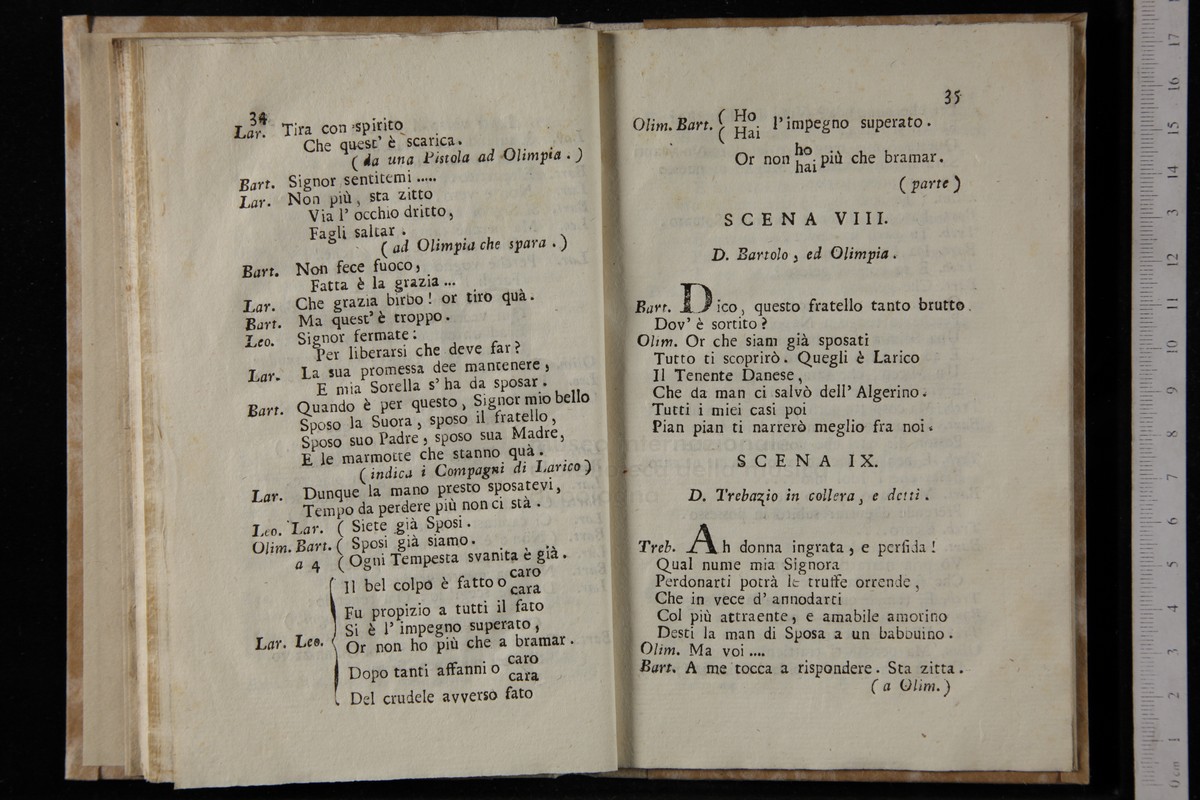 34
Lar. Tira con spirito
Che quest' è scarica.
( da una Pistola ad Olimpia . )
Bart. Signor sentitemi .....
Lar. Non più, sta zitto
Via l' occhio dritto,
Fagli saltar .
( ad Olimpia che spara . )
Bart. Non fece fuoco,
Fatta è la grazia ...
Lar. Che grazia birbo! or tiro quà.
Bart. Ma quest' è troppo.
Leo. Signor fermate:
Per liberarsi che deve far?
Lar. La sua promessa dee mantenere,
E mia Sorella s' ha da sposar.
Bart. Quando è per questo, Signor mio bello
Sposo la Suora, sposo il fratello,
Sposo suo Padre, sposo sua Madre,
E le marmotte che stanno quà.
( indica i Compagni di Larico )
Lar. Dunque la mano presto sposatevi,
Tempo da perdere più non ci stà .
Leo. Lar. ( Siete già Sposi.
Olim. Bart. ( Sposi già siamo.
a 4 ( Ogni Tempesta svanita è già.
Il bel colpo è fatto o caro
cara
Fu propizio a tutti il fato
Si è l' impegno superato,
Lar. Leo. Or non ho più che a bramar.
Dopo tanti affanni o caro
cara
Del crudele avverso fato
35
Olim. Bart. ( Ho
( Hai l'impegno superato.
Or non ho
hai più che bramar.
( parte )
SCENA VIII.
D. Bartolo, ed Olimpia.
Bart. Dico, questo fratello tanto brutto.
Dov' è sortito?
Olim. Or che siam già sposati
Tutto ti scoprirò. Quegli è Larico
Il Tenente Danese,
Che da man ci salvò dell' Algerino.
Tutti i miei casi poi
Pian pian ti narrerò meglio fra noi.
SCENA IX.
D. Trebazio in collera, e detti.
Treb. Ah donna ingrata, e perfida!
Qual nume mia Signora
Perdonarti potrà le truffe orrende,
Che in vece d' annodarti
Col più attraente, e amabile amorino
Desti la man di Sposa a un babbuino.
Olim. Ma voi ....
Bart. A me tocca a rispondere. Sta zitta.
( a Olim. )